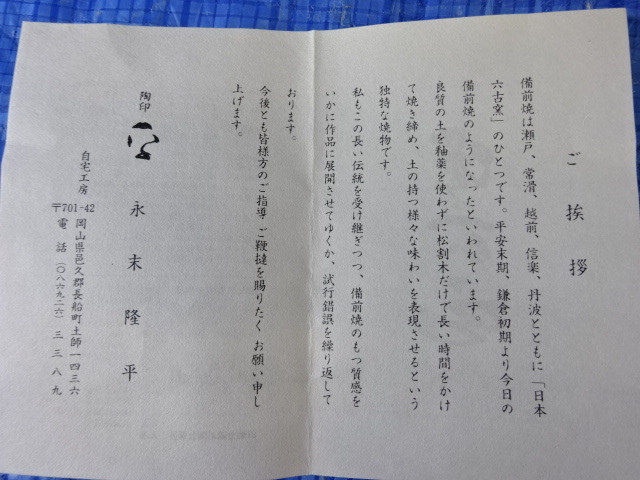 ご挨拶
備前焼は瀬戸、常滑、越前、信楽、丹波とともに「日本
六古窯」のひとつです。平安末期、鎌倉初期より今日の
備前焼のようになったといわれています。
良質の土を釉薬を使わずに松割木だけで長い時間をかけ
て焼き締め、土の持つ様々な味わいを表現させるという
独特な焼物です。
私もこの長い伝統を受け継ぎつつ、備前焼のもつ質感を
いかに作品に展開させてゆくか、試行錯誤を繰り返して
おります。
今後とも皆様方のご指導 ご鞭撻を賜りたく お願い申し
上げます。
陶印
永末隆平
自宅工房
〒701-42 岡山県邑久郡長船町土師一四三六
電話(〇八六九二六)三三八九